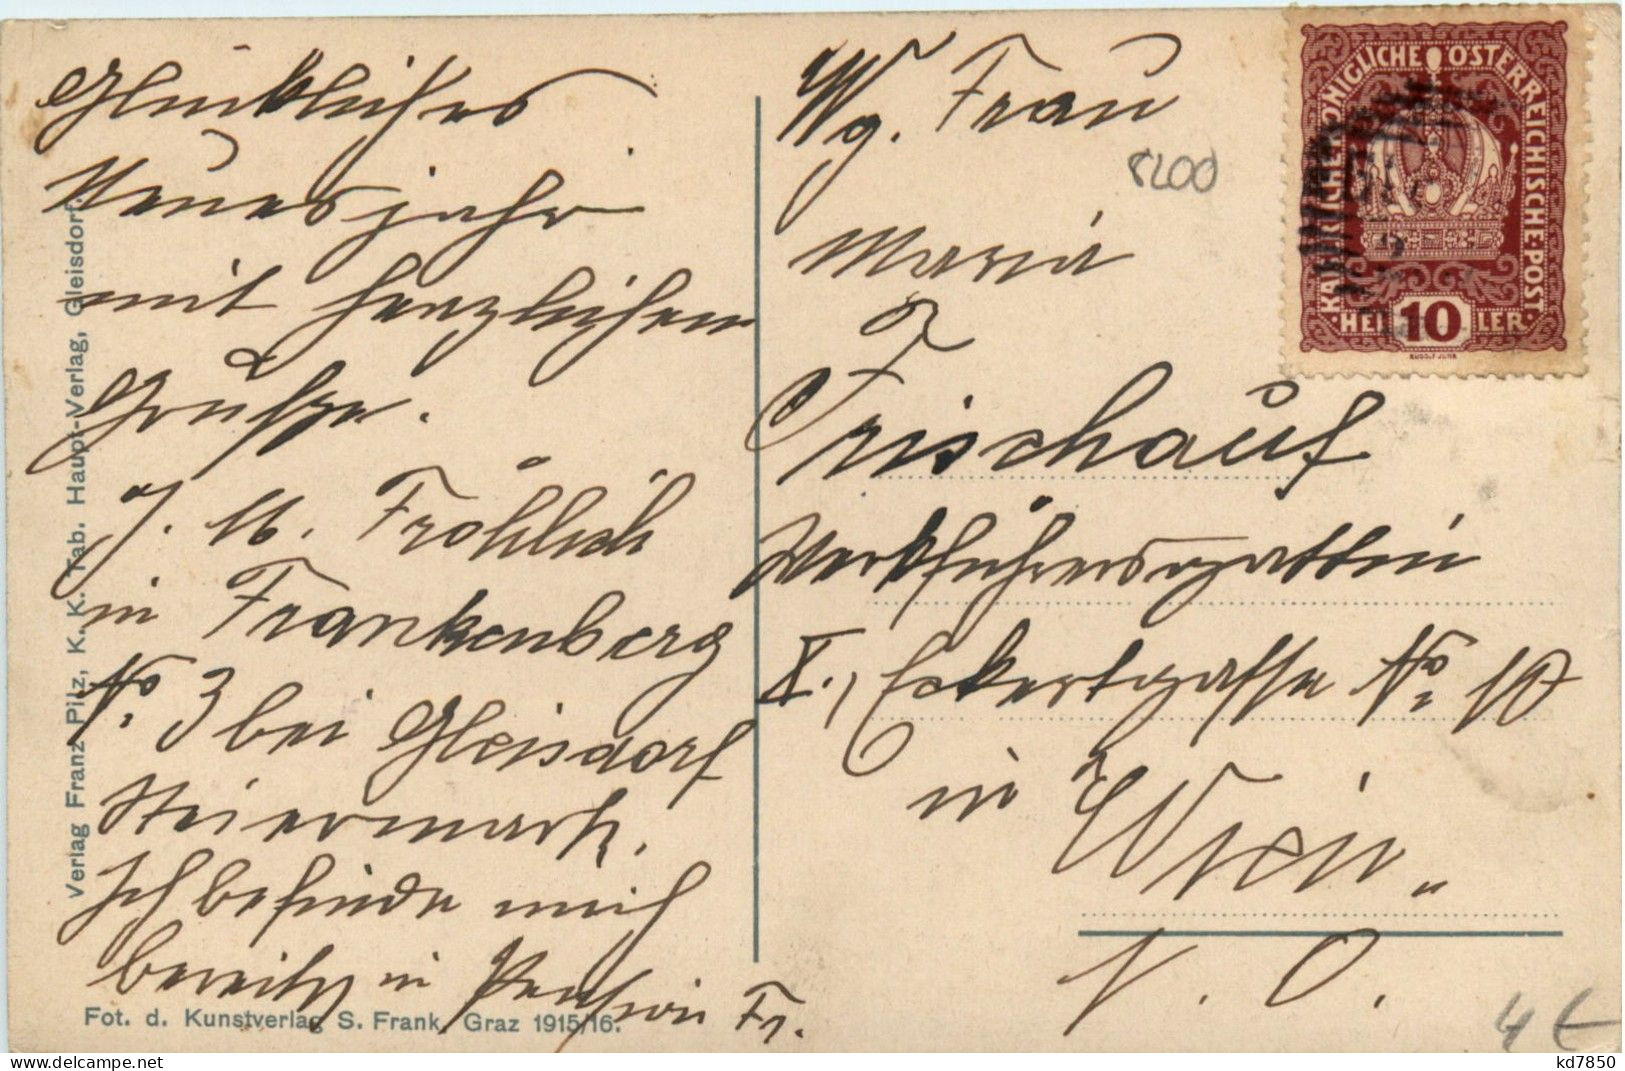 Glückliches
Neuesjahr
mit herzlichen
Grüßen.
J. M. Fröhlich
in Frankenberg
No. 3 bei Gleisdorf
Steiermark.
Ich befinde mich
bereits in Pension Fr.
Wg. Frau
Maria
Frischauf
Werkführersgattin
X., Eckertgasse No. 10
in Wien„
N. Ö.
8200
4 €
KAISERLICHE KÖNIGLICHE ÖSTERREICHISCHE POST
HELLER 10
RUDOLF JUNK
Verlag Franz Pilz, K. K. Tab. Haupt-Verlag, Gleisdorf.
Fot. d. Kunstverlag S. Frank, Graz 1915/16.
www.delcampe.net
kd7850